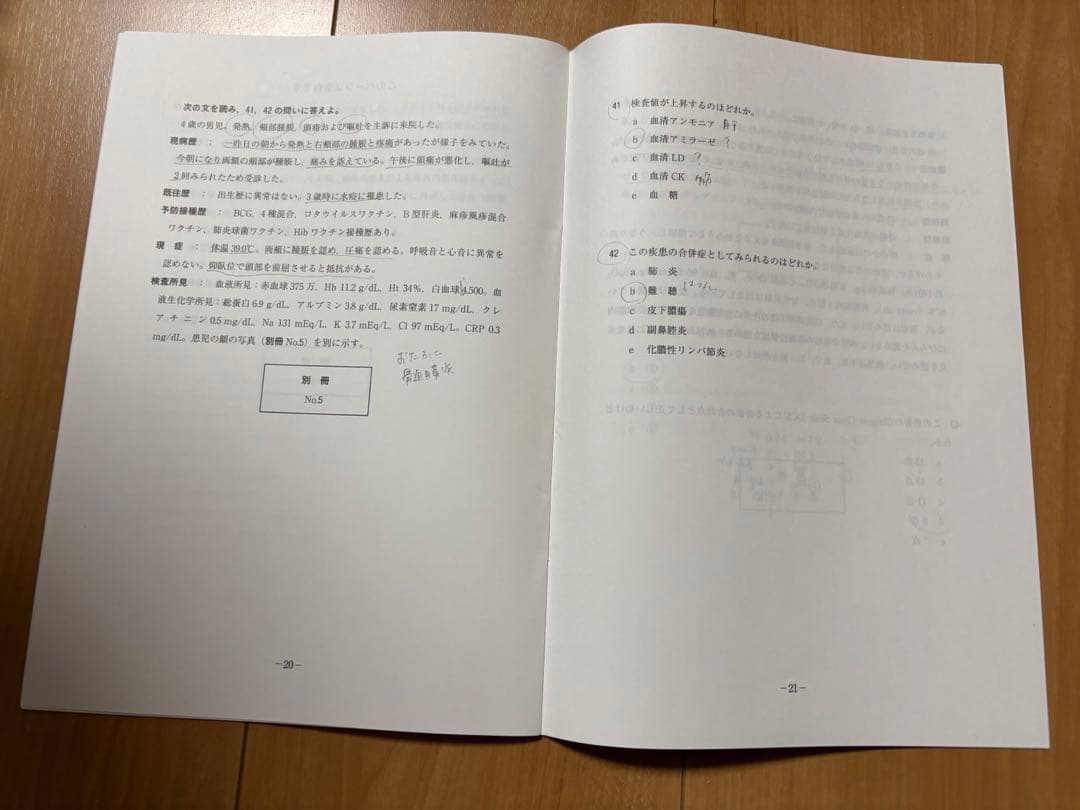 次の文を読み,41,42の問いに答えよ。
4歳の男児。発熱,頰部腫脹,頭痛および嘔吐を主訴に来院した。
現病歴 : 一昨日の朝から発熱と右頰部の腫脹と疼痛があったが様子をみていた。
今朝になり両側の頰部が腫脹し,痛みを訴えている。午後に頭痛が悪化し,嘔吐が
2回みられたため受診した。
既往歴 : 出生歴に異常はない。3歳時に水痘に罹患した。
予防接種歴 : BCG,4種混合,ロタウイルスワクチン,B型肝炎,麻疹風疹混合
ワクチン,肺炎球菌ワクチン,Hibワクチン接種歴あり。
現 症 : 体温39.0℃。両頰に腫脹を認め,圧痛を認める。呼吸音と心音に異常を
認めない。仰臥位で頭部を前屈させると抵抗がある。
検査所見 : 血液所見:赤血球375万,Hb 11.2 g/dL,Ht 34%,白血球4,500。血
液生化学所見:総蛋白6.9 g/dL,アルブミン3.8 g/dL,尿素窒素17 mg/dL,クレ
アチニン0.5 mg/dL,Na 131 mEq/L,K 3.7 mEq/L,Cl 97 mEq/L。CRP 0.3
mg/dL。患児の顔の写真(別冊No.5)を別に示す。
おたふくと
髄膜炎
別 冊
No.5
-20-
41 検査値が上昇するのはどれか。
a 血清アンモニア 肝
b 血清アミラーゼ ?
c 血清LD ?
d 血清CK 筋
e 血 糖
42 この疾患の合併症としてみられるのはどれか。
a 肺 炎
b 難 聴
c 皮下膿瘍
d 副鼻腔炎
e 化膿性リンパ節炎
-21-